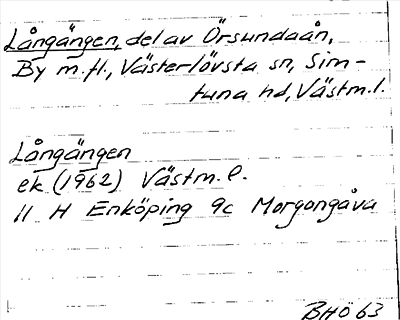 Långängen, del av Örsundaån,
By m.fl., Västerlövsta sn, Sim-
tuna hd, Västm.l.
Långängen
ek (1962) Västm. l.
11 H Enköping 9c Morgongåva
BHÖ 63